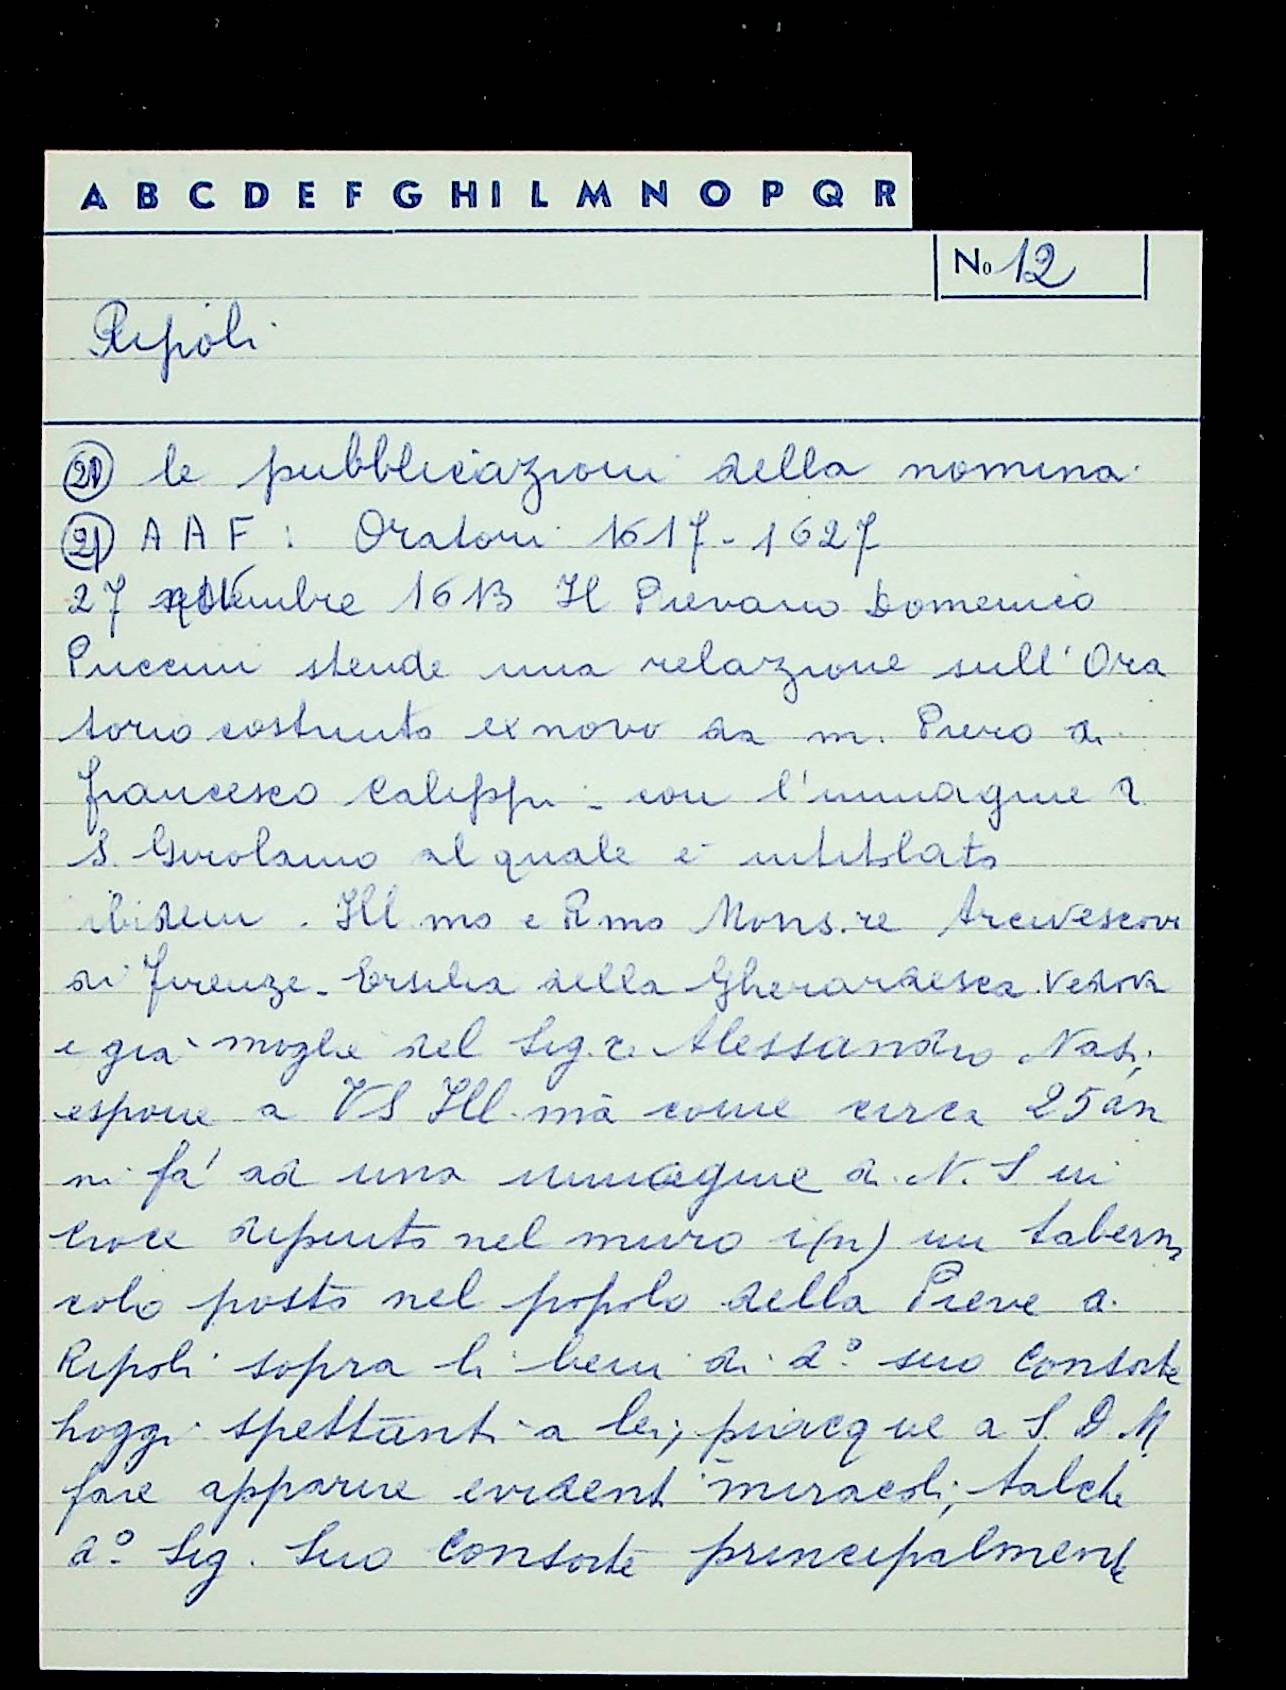 A B C D E F G H I L M N O P Q R
No 12
Ripoli
20 le pubblicazioni della nomina
21 A A F : Oratori 1617-1627
27 1613 Il Pievano Domenico
Puccini stende una relazione sull'Ora
torio costruito ex novo da m. Piero di
Francesco Caleppi - con l'immagine di
S. Girolamo al quale è intitolato
ibidem. Ill.mo e R.mo Mons.re Arcivescovo
di Firenze - Ersilia della Gherardesca vedova
e già moglie del Sig.re Alessandro Nasi,
espone a VS Ill.ma come circa 25 an
ni fa' ad una immagine di N. S in
Croce dipinto nel muro i(n) un taberna
colo posto nel popolo della Pieve a
Ripoli sopra li beni di d.o suo Consorte
hoggi spettanti a lei, piacque a S. D. M.
fare apparire evidenti miracoli, talche
d.o Sig. Suo Consorte principalmente